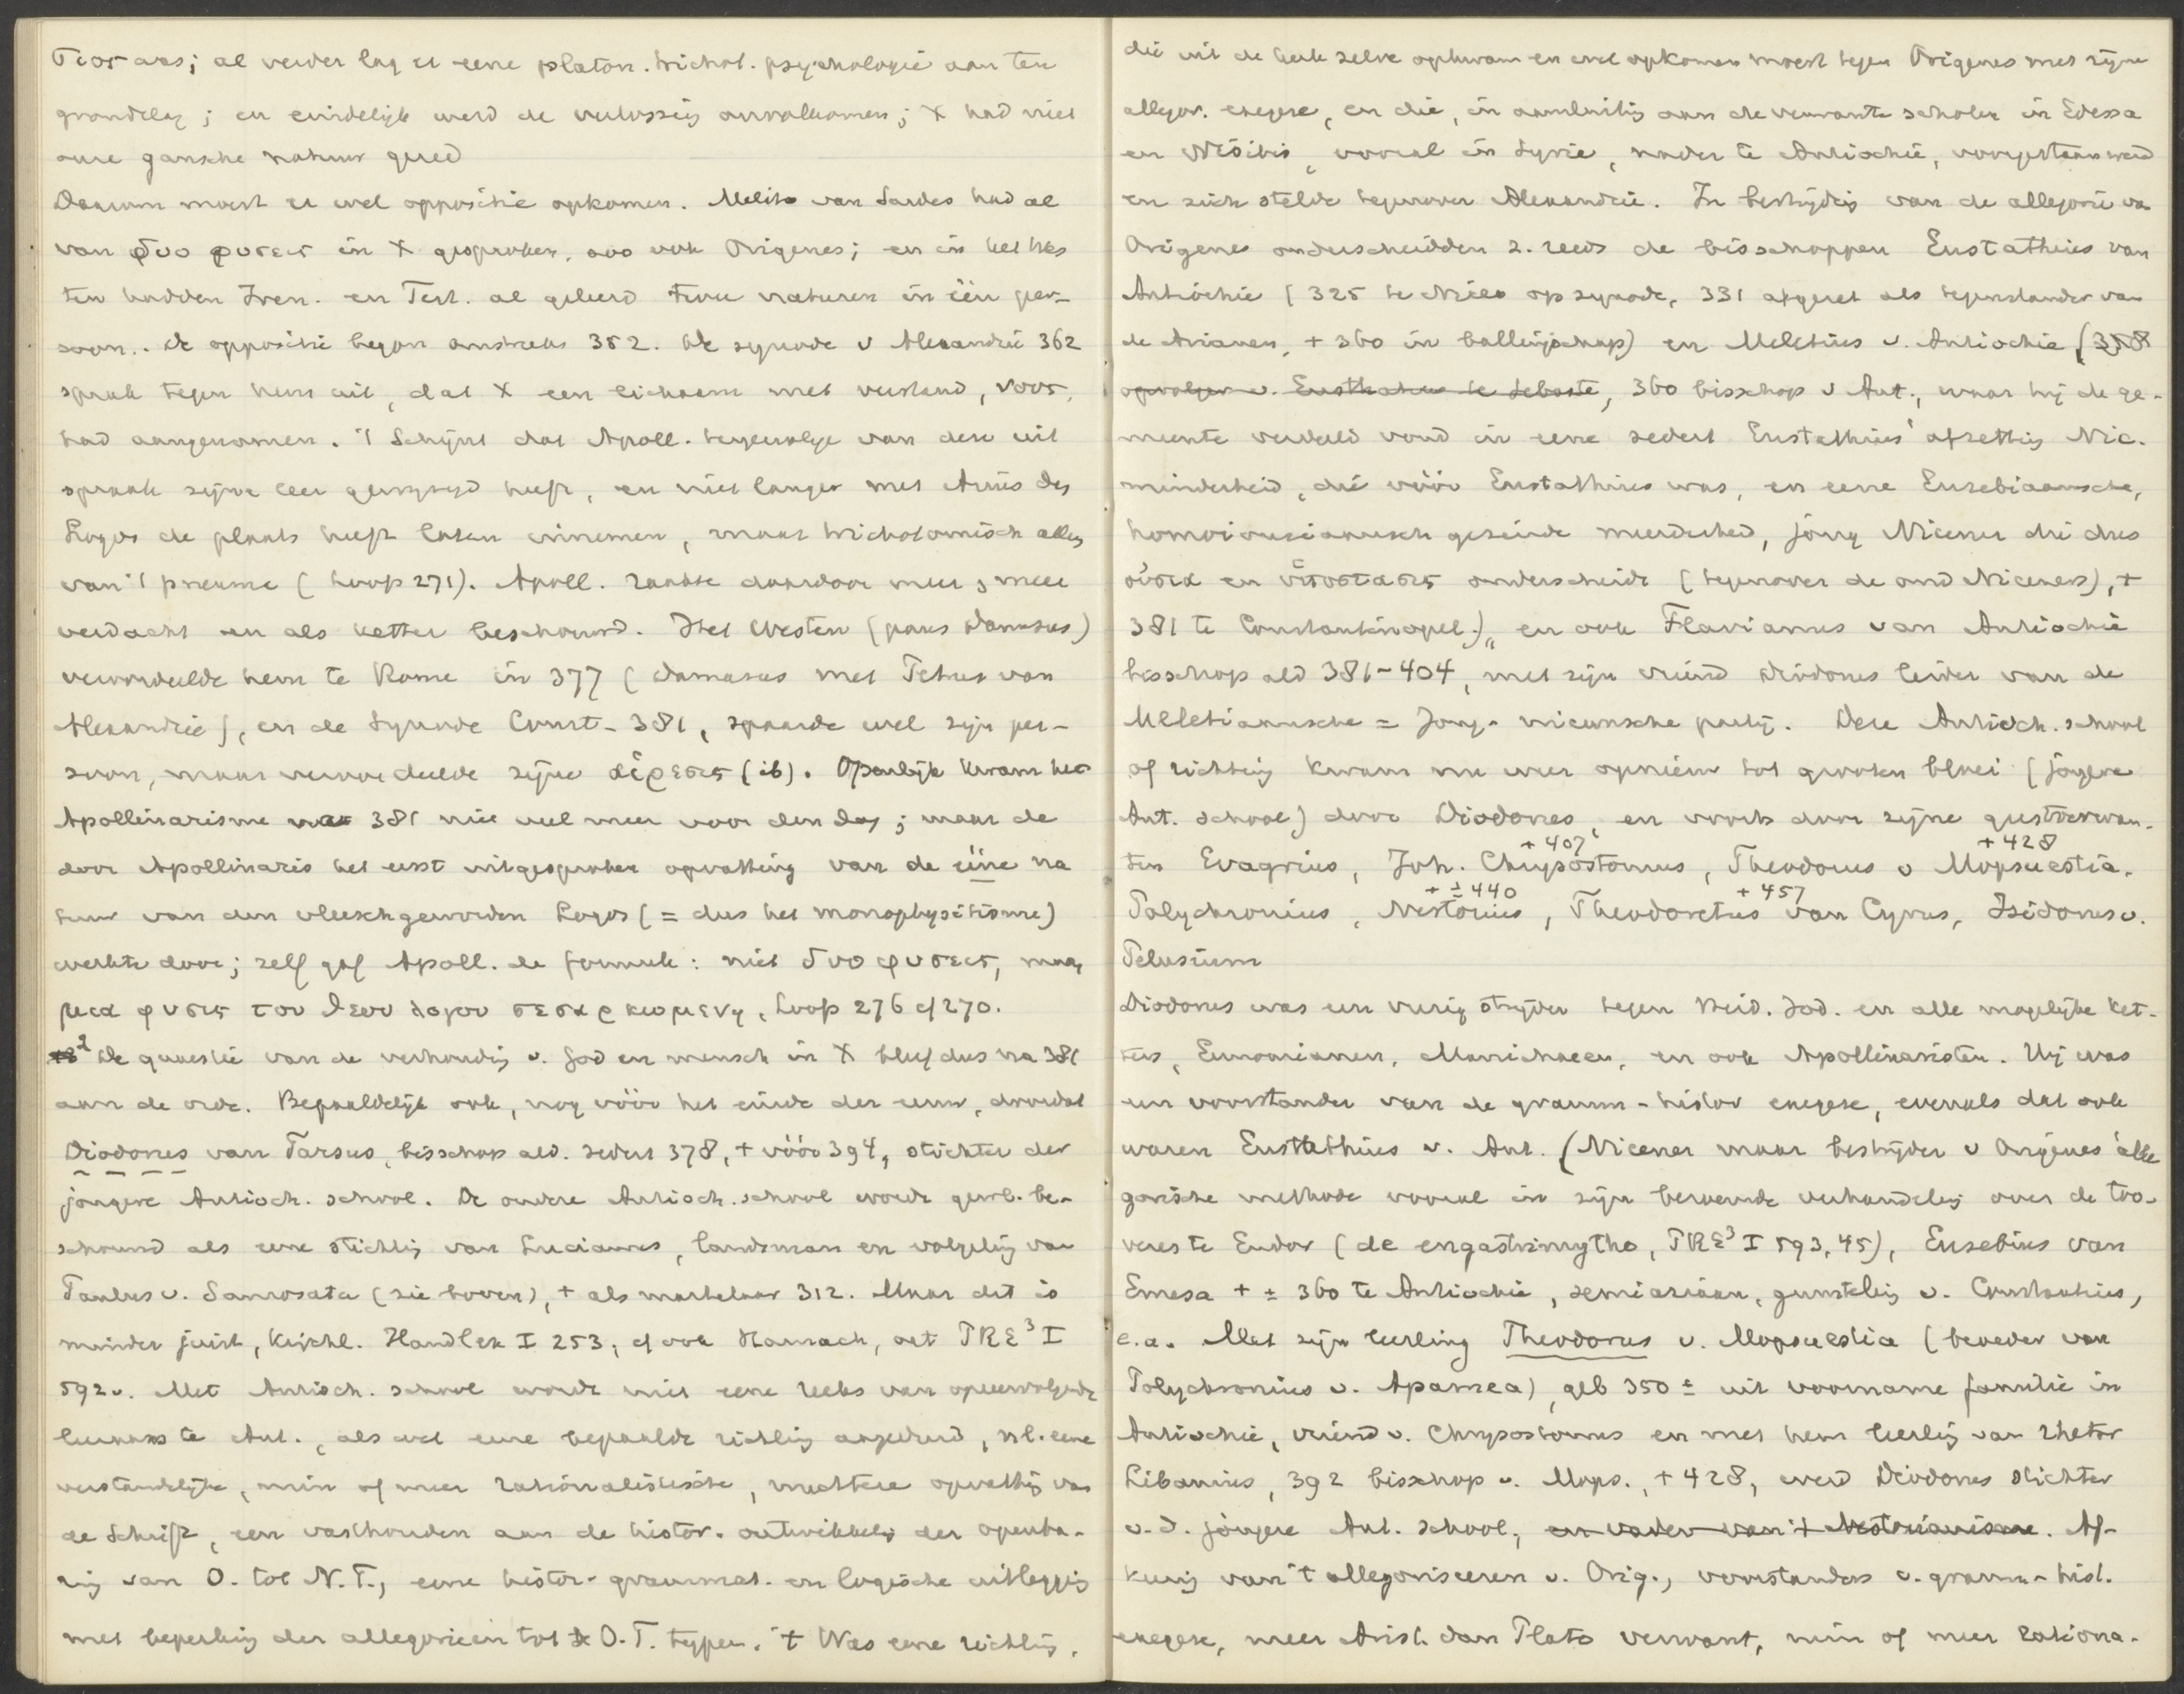 al verder lag er eene platon. trichot. psychologie aan ten
grondslag; en eindelijk werd de verlossing onvolkomen; X had niet
onze gansche natuur gered
Daarom moest er wel oppositie opkomen. Melito van Sardes had al
van δυο φυσεις in X gesproken, zoo ook Origenes; en in het Wes
ten hadden Iren. en Tert. al geleerd twee naturen in één per-
soon.. De oppositie begon omstreeks 352. De synode v Alexandrië 362
sprak tegen hem uit, dat X een lichaam met verstand, νους,
had aangenomen. 't Schijnt dat Apoll. tengevolge van deze uit
spraak zijne leer gewijzigd heeft, en niet langer met Arius den
Logos de plaats heeft laten innemen, maar trichotomisch alleen
van 't pneuma (Loofs 271). Apoll. raakte daardoor meer en meer
verdacht en als ketter beschouwd. Het Westen (paus Damasus)
veroordeelde hem te Rome in 377 (Damasus met Petrus van
Alexandrië), en de Synode Const. 381, spaarde wel zijn per-
soon, maar veroordeelde zijne αἱρεσις (ib). Openlijk kwam het
Apollinarisme na 381 niet veel meer voor den dag; maar de
door Apollinaris het eerst uitgesproken opvatting van de ééne na
tuur van den vleeschgeworden Logos (= dus het monophysitisme)
werkte door; zelf gaf Apoll. de formule: niet δυο φυσεις, maar
μια φυσις του θεου λογου σεσαρκωμενη, Loofs 276 cf 270.
2 De quaestie van de verhouding v. God en mensch in X bleef dus na 381
aan de orde. Bepaaldelijk ook, nog vóór het einde der eeuw, doordat
Diodorus van Tarsus, bisschop ald. sedert 378, + vóór 394, stichter der
jongere Antioch. school. De oudere Antioch. school wordt gew. be-
schouwd als eene stichting van Lucianus, landsman en volgeling van
Paulus v. Samosata (zie boven), + als martelaar 312. Maar dit is
minder juist, Kirchl. Handlex I 253, cf ook Harnack, art PRE³ I
592v. Met Antioch. school wordt niet eene reeks van opeenvolgende
leeraars te Ant., als wel eene bepaalde richting aangeduid, nl. eene
verstandelijke, min of meer rationalistische, nuchtere opvatting van
de Schrift, een vasthouden aan de histor. ontwikkeling der openba-
ring van O. tot N.T., eene histor-grammat. en logische uitlegging
met beperking der allegorieen tot de O.T. typen. 't Was eene richting,
die uit de kerk zelve opkwam en wel opkomen moest tegen Origenes met zijne
allegor. exegese, en die, in aansluiting aan de verwante scholen in Edessa
en Nisibis, vooral in Syrie, nader te Antiochië, voorgestaan werd
en zich stelde tegenover Alexandrië. In bestrijding van de allegorie van
Origenes onderscheidden z. reeds de bisschoppen Eustathius van
Antiochië (325 te Nicea op synode, 331 afgezet als tegenstander van
de Arianen, + 360 in ballingschap) en Meletius v. Antiochië (358
opvolger v. Eustathius te Sebaste, 360 bisschop v Ant., waar hij de ge-
meente verdeeld vond in eene sedert Eustathius' afzetting Nic.
minderheid, die vóór Eustathius was, en eene Eusebiaansche,
homoiousiaansch gezinde meerderheid, jong Nicener die dus
οὐσια en ὑποστασις onderscheidt (tegenover de oud Niceners), +
381 te Constantinopel), en ook Flavianus van Antiochië
bisschop ald 381-404, met zijn vriend Diodorus leider van de
Meletiaansche = Jong-niceensche partij. Deze Antioch. school
of richting kwam nu weer opnieuw tot grooten bloei (jongere
Ant. school) door Diodorus, en voorts door zijne geestverwan-
ten Evagrius, Joh. Chrysostomus + 407, Theodorus v Mopsuestia + 428.
Polychronius, Nestorius + ± 440, Theodoretus van Cyrus + 457, Isidorus v.
Pelusium
Diodorus was een vurig strijder tegen Heid. Jod. en alle mogelijke ket-
ters, Eunomianen, Manichaeen, en ook Apollinaristen. Hij was
een voorstander van de gramm-histor exegese, evenals dat ook
waren Eustathius v. Ant. (Nicener maar bestrijder v Origenes' alle
gorische methode vooral in zijn beroemde verhandeling over de too-
veres te Endor (de engastrimytho, PRE³ I 593,45), Eusebius van
Emesa + ± 360 te Antiochië, semiariaan, gunsteling v. Constantius,
e.a. Met zijn leerling Theodorus v. Mopsuestia (broeder van
Polychronius v. Apamea), geb 350 ± uit voorname familie in
Antiochië, vriend v. Chrysostomus en met hem leerling van rhetor
Libanius, 392 bisschop v. Mops., + 428, werd Diodorus stichter
v.d. jongere Ant. school, en vader van 't Nestorianisme. Af-
keerig van 't allegoriseeren v. Orig., voorstander v. gramm-hist.
exegese, meer Arist. dan Plato verwant, min of meer rationa-